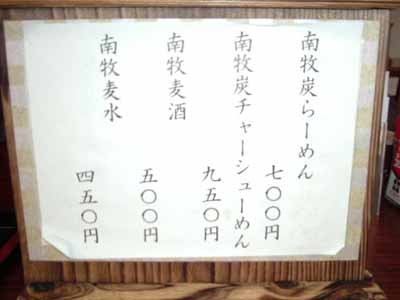 南牧炭らーめん
七〇〇円
南牧炭チャーシューめん
九五〇円
南牧麦酒
五〇〇円
南牧麦水
四五〇円